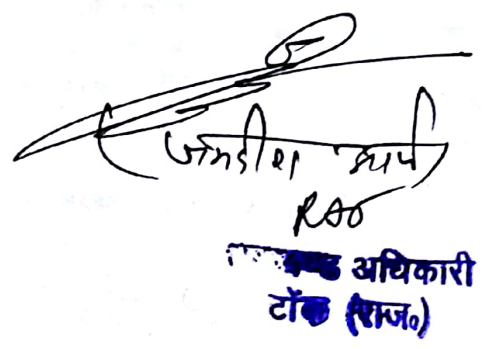 (जगदीश आर्य)
RAS
खण्ड अधिकारी
टोंक (राज०)